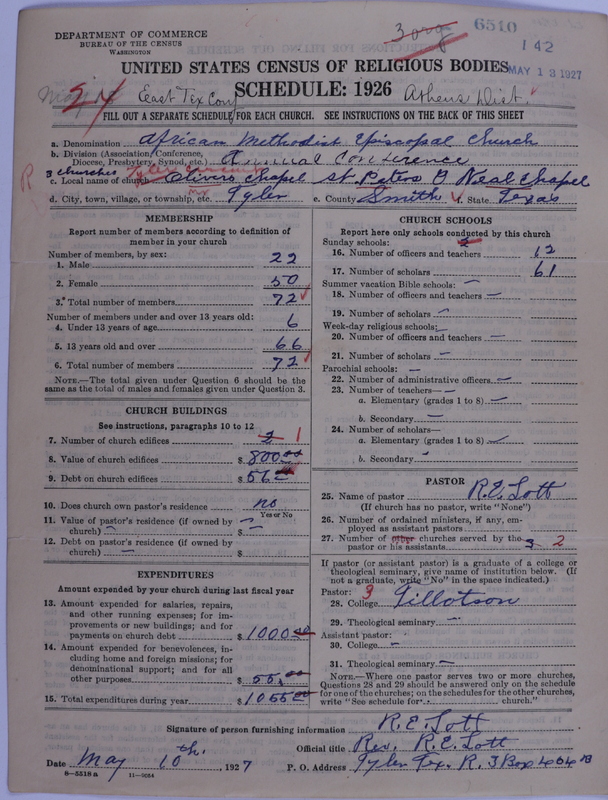 DEPARTMENT OF COMMERCE
BUREAU OF THE CENSUS
WASHINGTON
6510
142
MAY 13 1927
UNITED STATES CENSUS OF RELIGIOUS BODIES
SCHEDULE: 1926
East Tex Conf
Athens Dist.
FILL OUT A SEPARATE SCHEDULE FOR EACH CHURCH. SEE INSTRUCTIONS ON THE BACK OF THIS SHEET
a. Denomination African Methodist Episcopal Church
b. Division (Association, Conference, Diocese, Presbytery, Synod, etc.) Annual Conference
3 churches
c. Local name of church Olivers Chapel St. Peters O Neal Chapel
d. City, town, village, or township, etc. Tyler e. County Smith f. State Texas
MEMBERSHIP
Report number of members according to definition of member in your church
Number of members, by sex:
1. Male 22
2. Female 50
3. Total number of members 72
Number of members under and over 13 years old:
4. Under 13 years of age 6
5. 13 years old and over 66
6. Total number of members 72
NOTE.—The total given under Question 6 should be the same as the total of males and females given under Question 3.
CHURCH BUILDINGS
See instructions, paragraphs 10 to 12
7. Number of church edifices 2 1
8. Value of church edifices $ 800.00
9. Debt on church edifices $ 56.00
10. Does church own pastor's residence? no
Yes or No
11. Value of pastor's residence (if owned by church) — $ —
12. Debt on pastor's residence (if owned by church) — $
EXPENDITURES
Amount expended by your church during last fiscal year
13. Amount expended for salaries, repairs, and other running expenses; for improvements or new buildings; and for payments on church debt $ 1000.00
14. Amount expended for benevolences, including home and foreign missions; for denominational support; and for all other purposes $ 55.00
15. Total expenditures during year $ 1055.00
CHURCH SCHOOLS
Report here only schools conducted by this church
Sunday schools: 2
16. Number of officers and teachers 12
17. Number of scholars 61
Summer vacation Bible schools: —
18. Number of officers and teachers —
19. Number of scholars —
Week-day religious schools: —
20. Number of officers and teachers —
21. Number of scholars —
Parochial schools: —
22. Number of administrative officers —
23. Number of teachers— —
a. Elementary (grades 1 to 8) —
b. Secondary —
24. Number of scholars—
a. Elementary (grades 1 to 8) —
b. Secondary
PASTOR
25. Name of pastor R.E. Lott
(If church has no pastor, write "None")
26. Number of ordained ministers, if any, employed as assistant pastors
27. Number of other churches served by the pastor or his assistants 3 2
If pastor (or assistant pastor) is a graduate of a college or theological seminary, give name of institution below. (If not a graduate, write "No" in the space indicated.)
Pastor: 3
28. College Tillotson
29. Theological seminary —
Assistant pastor:
30. College —
31. Theological seminary —
NOTE.—Where one pastor serves two or more churches, Questions 28 and 29 should be answered only on the schedule for one of the churches; on the schedules for the other churches, write "See schedule for church."
Signature of person furnishing information R.E. Lott
Official title Rev. R.E. Lott
Date May 10th. 1927 P. O. Address Tyler Tex. R. 3 Box 404 B
8-5518 a 11-9084